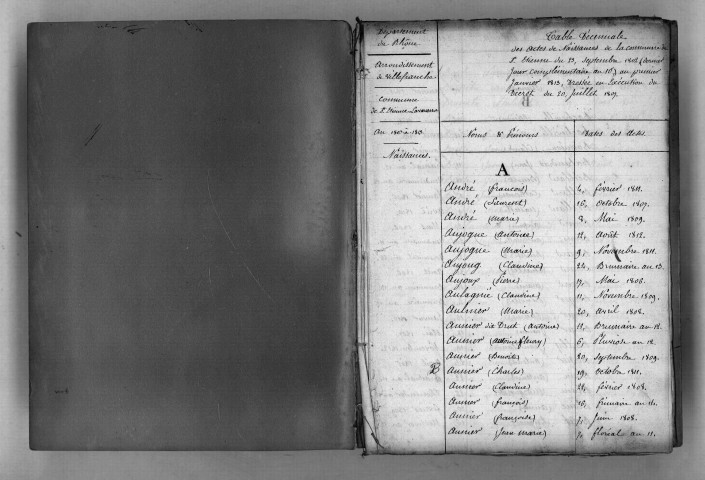 Département
du Rhône
Arrondissement
de Villefranche
Commune
de St Etienne
Naissances.
Table Décennale
des Actes de Naissances de la commune de
St Etienne du 23, Septembre 1802 (dernier
jour complémentaire an 10) au premier
Janvier 1813, Dressée en Exécution du
Décret du 20, Juillet 1807.
Noms & Prénoms Dates des Actes
A
André (françois) 4, février 1811.
André (Laurent) 16, octobre 1807.
André (Marie) 2, Mai 1809.
Aujogue (Antoine) 12, Août 1812.
Aujogue (Marie) 9, Novembre 1811.
Aujoug (Claudine) 24, Brumaire an 13.
Aujoux (Pierre) 17, Mai 1806.
Aulagnié (Claudine) 11, Novembre 1809.
Aulnier (Marie) 20, avril 1808.
Aunier dit Drut (Antoine) 11, Brumaire an 12.
Aunier (antoine fleury) 6, Pluviose an 12.
Aunier (Benoite) 20, Septembre 1809.
B Aunier (Charles) 19, octobre 1811.
Aunier (Claudine) 22, février 1808.
Aunier (françois) 16, frimaire an 14.
Aunier (françoise) 7, Juin 1808.
Aunier (Jean Marie) 7, floréal an 11.